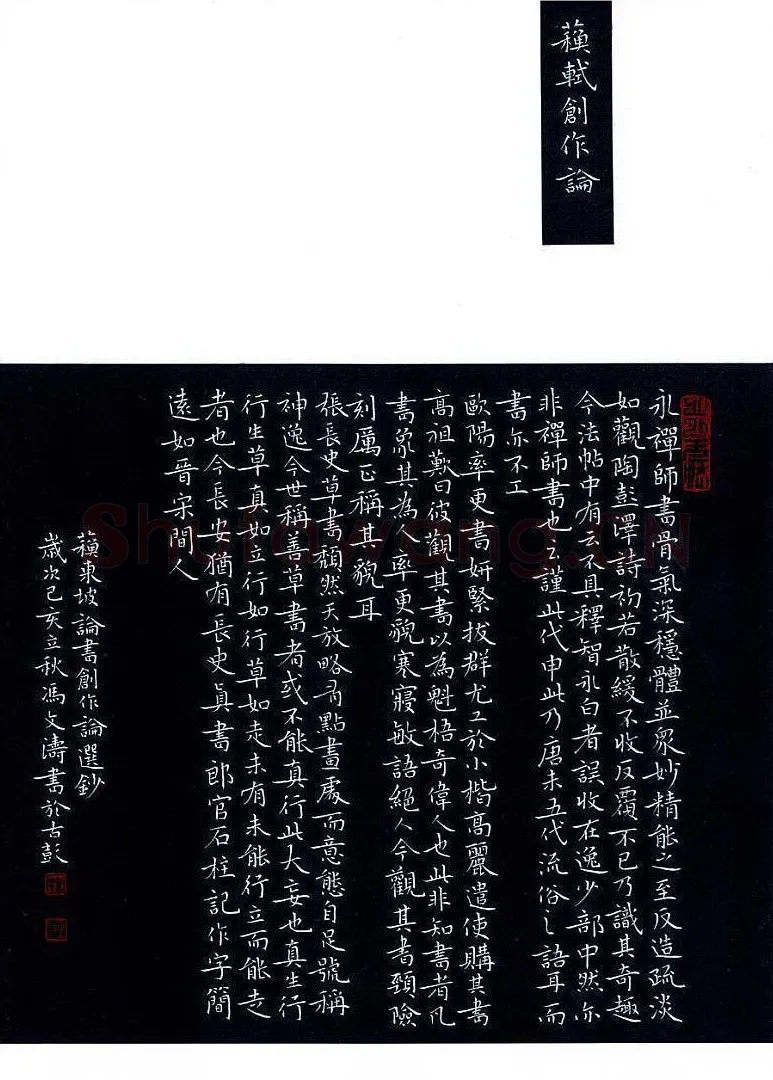 蘓軾創作論
永禪師書骨氣深穩體並衆妙精能之至反造疏淡
如觀陶彭澤詩初若散緩不收反覆不已乃識其奇趣
今法帖中有云不具釋智永白者誤收在逸少部中然亦
非禪師書也云謹此代申此乃唐末五代流俗之語耳而
書亦不工
歐陽率更書妍緊拔群尤工於小楷高麗遣使購其書
高祖歎曰彼觀其書以為魁梧奇偉人也此非知書者凡
書象其為人率更貌寒寢敏語絕人今觀其書頸險
刻厲正稱其貌耳
張長史草書頹然天放略有點畫處而意態自足號稱
神逸今世稱善草書者或不能真行此大妄也真生行
行生草真如立行如行草如走未有未能行立而能走
者也今長安猶有長史真書郎官石柱記作字簡
遠如晉宋間人
蘓東坡論書創作論選鈔
歲次己亥立秋馮文濤書於古彭
Shufawang.CN